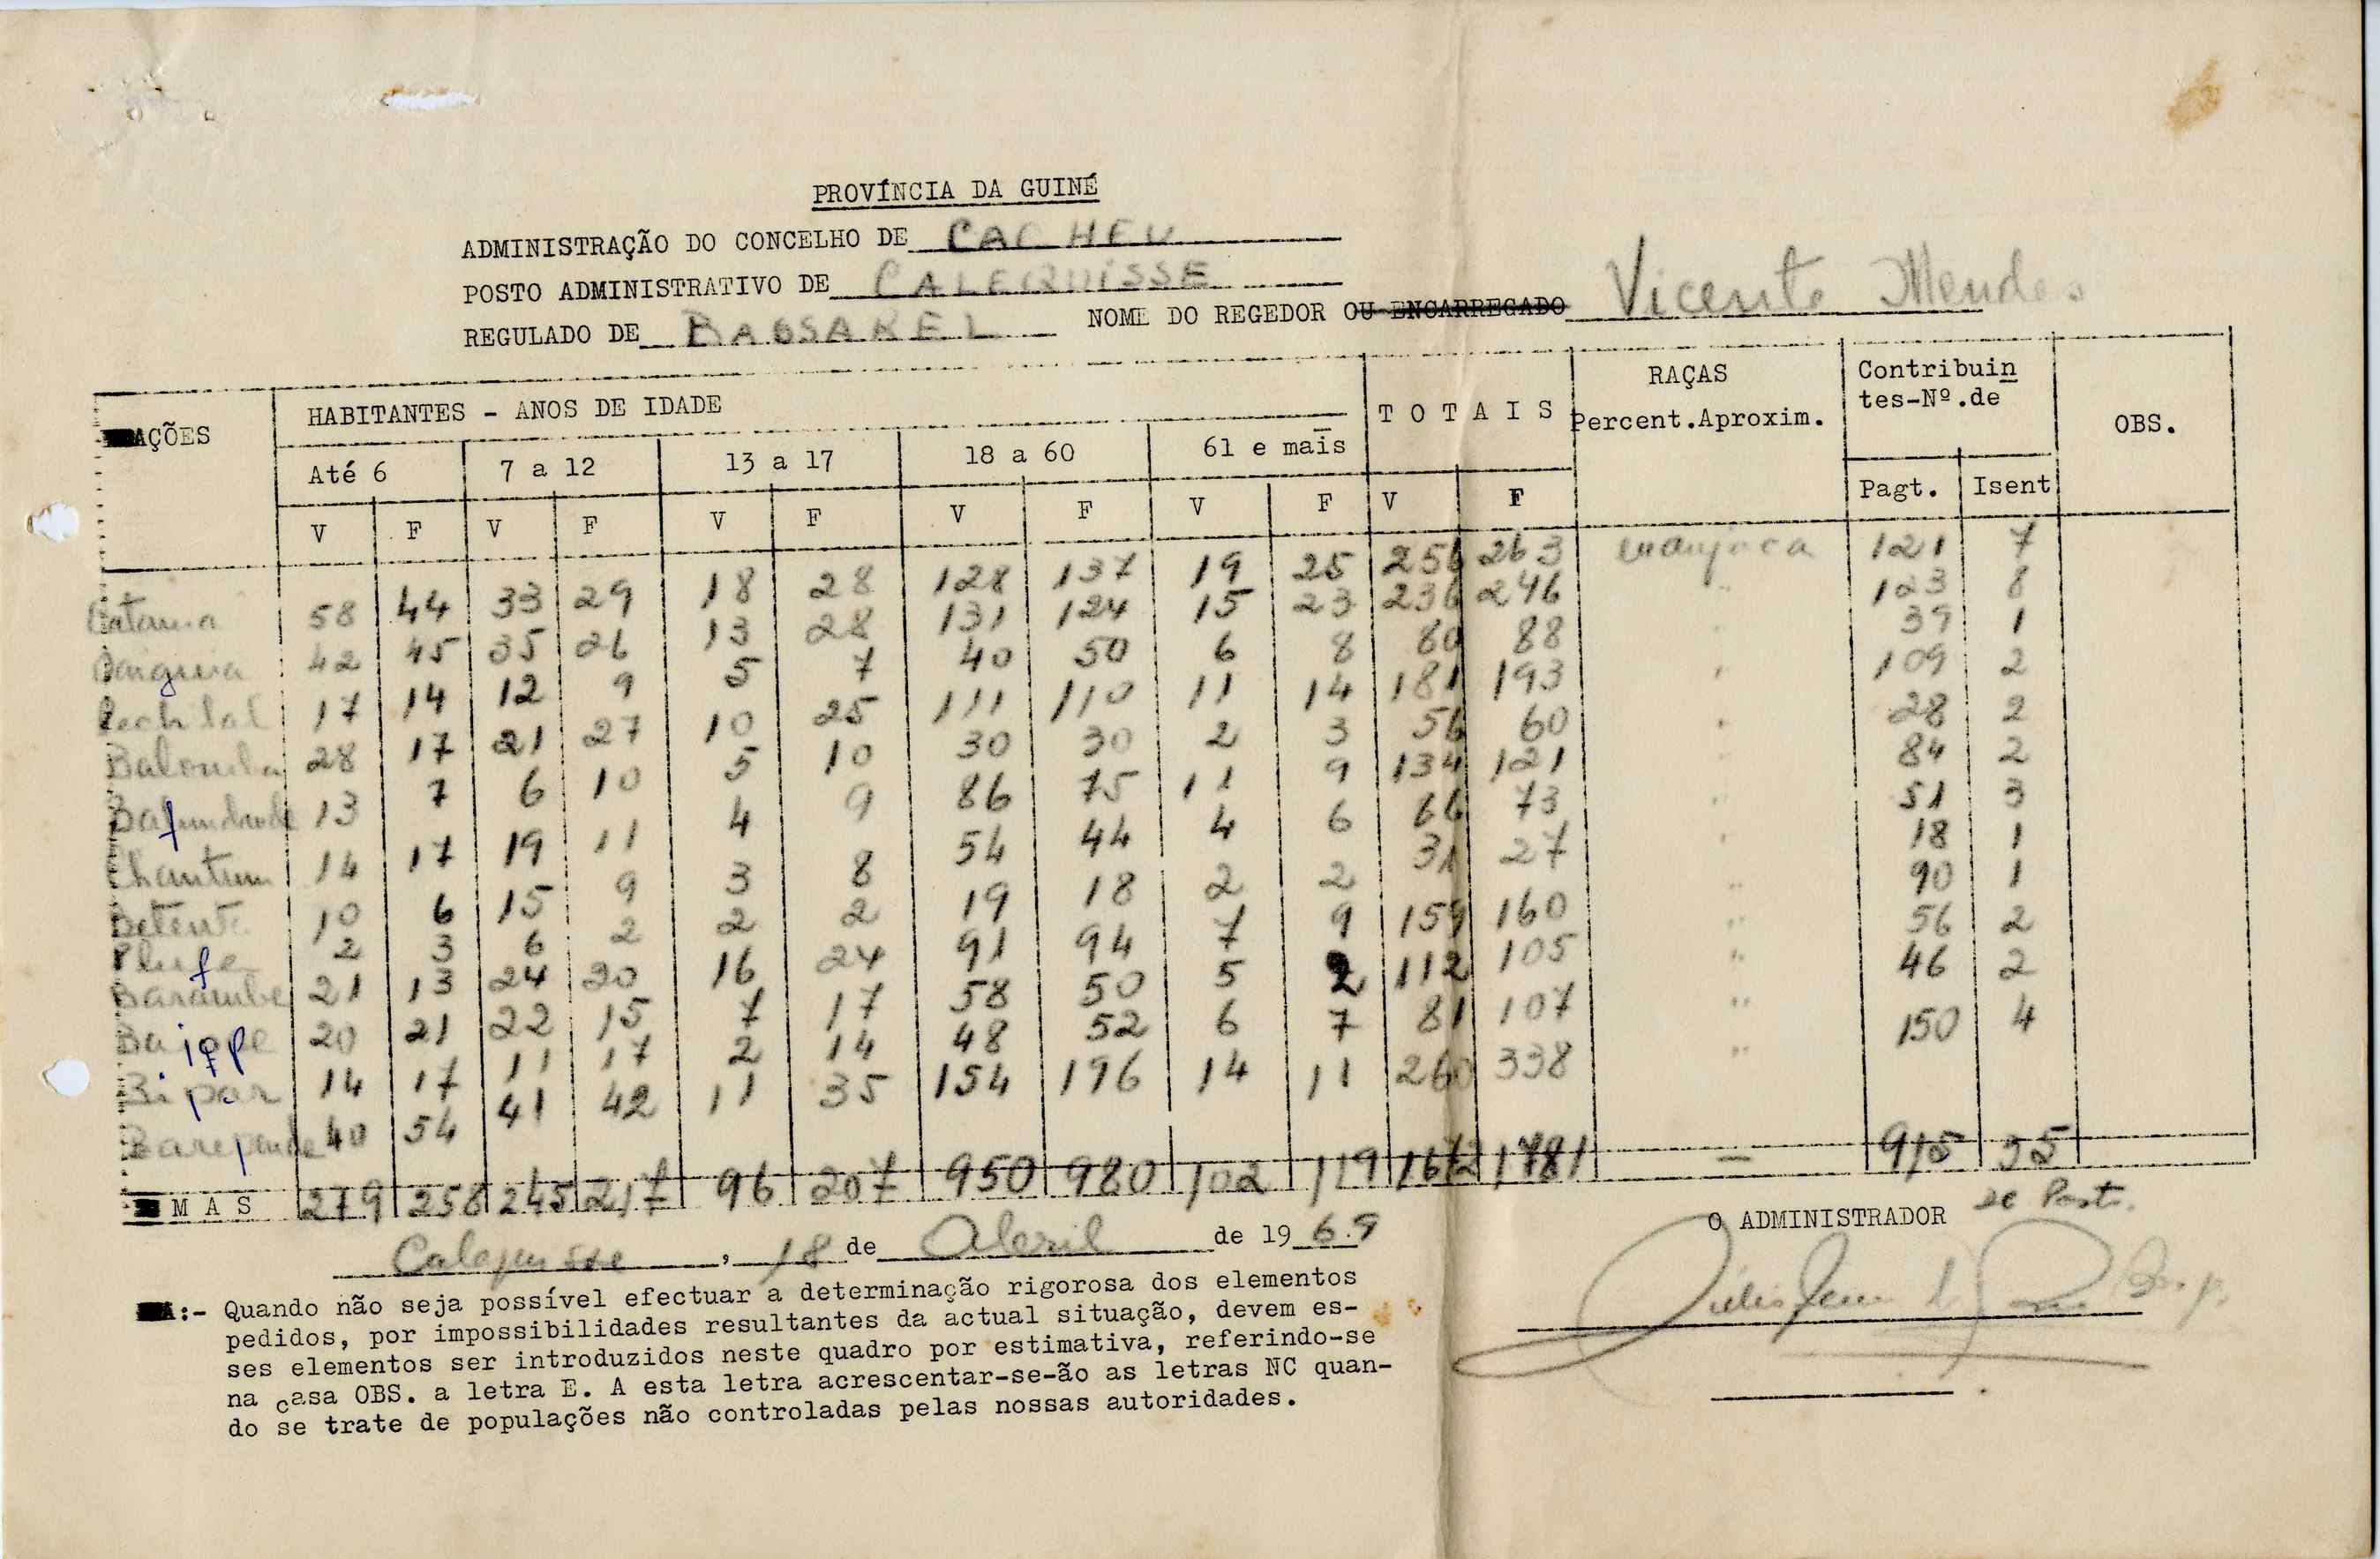 PROVÍNCIA DA GUINÉ
ADMINISTRAÇÃO DO CONCELHO DE CACHEU
POSTO ADMINISTRATIVO DE CALEQUISSE
REGULADO DE BASSAREL NOME DO REGEDOR OU ENCARREGADO Vicente Mendes
AÇÕES HABITANTES - ANOS DE IDADE TOTAIS RAÇAS Percent.Aproxim. Contribuin
tes-Nº.de OBS.
Até 6 7 a 12 13 a 17 18 a 60 61 e mais
V F V F V F V F V F V F Pagt. Isent
Catama 58 44 33 29 18 28 128 137 19 25 256 263 manjaca 121 7
Baiguia 42 45 35 26 13 28 131 124 15 23 236 246 " 123 8
Pechilal 17 14 12 9 5 7 40 50 6 8 80 88 " 39 1
Balomba 28 17 21 27 10 25 111 110 11 14 181 193 " 109 2
Bafundande 13 7 6 10 5 10 30 30 2 3 56 60 " 28 2
Chantum 14 17 19 11 4 9 86 75 11 9 134 121 " 84 2
Betente 10 6 15 9 3 8 54 44 4 6 66 73 " 51 3
Plufe 2 3 6 2 2 2 19 18 2 2 31 27 " 18 1
Barambe 21 13 24 20 16 24 91 94 7 9 159 160 " 90 1
Baioppe 20 21 22 15 7 17 58 50 5 2 112 105 " 56 2
Bipar 14 17 11 17 2 14 48 52 6 7 81 107 " 46 2
Barepande 40 54 41 42 11 35 154 196 14 11 260 338 " 150 4
MAS 279 258 245 217 96 207 950 980 102 119 1672 1781 — 915 35
Calequisse, 18 de Abril de 1969
O ADMINISTRADOR de Posto.
A:- Quando não seja possível efectuar a determinação rigorosa dos elementos
pedidos, por impossibilidades resultantes da actual situação, devem es-
ses elementos ser introduzidos neste quadro por estimativa, referindo-se
na casa OBS. a letra E. A esta letra acrescentar-se-ão as letras NC quan-
do se trate de populações não controladas pelas nossas autoridades.